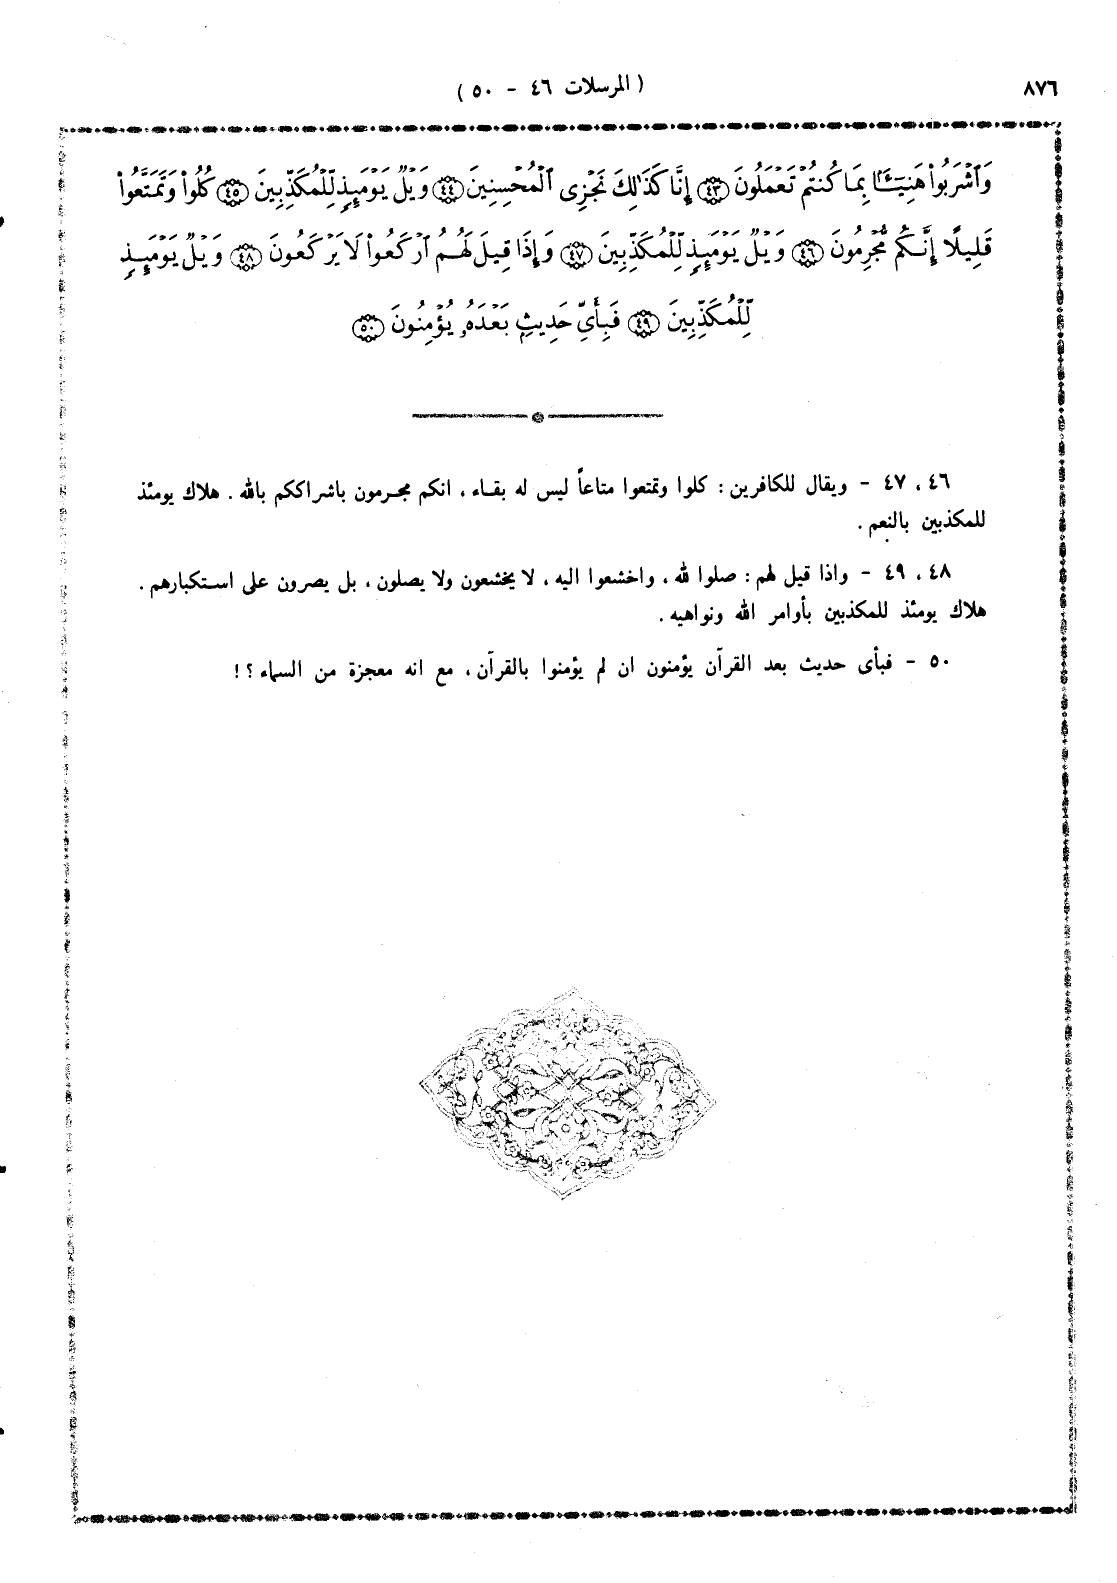 ٨٧٦
( المرسلات ٤٦ - ٥٠ )
وَٱشْرَبُوا۟ هَنِيٓـَٔۢا بِمَا كُنتُمْ تَعْمَلُونَ ﴿٤٣﴾ إِنَّا كَذَٰلِكَ نَجْزِى ٱلْمُحْسِنِينَ ﴿٤٤﴾ وَيْلٌ يَوْمَئِذٍ لِّلْمُكَذِّبِينَ ﴿٤٥﴾ كُلُوا۟ وَتَمَتَّعُوا۟
قَلِيلًا إِنَّكُم مُّجْرِمُونَ ﴿٤٦﴾ وَيْلٌ يَوْمَئِذٍ لِّلْمُكَذِّبِينَ ﴿٤٧﴾ وَإِذَا قِيلَ لَهُمُ ٱرْكَعُوا۟ لَا يَرْكَعُونَ ﴿٤٨﴾ وَيْلٌ يَوْمَئِذٍ
لِّلْمُكَذِّبِينَ ﴿٤٩﴾ فَبِأَىِّ حَدِيثٍۭ بَعْدَهُۥ يُؤْمِنُونَ ﴿٥٠﴾
٤٦ ، ٤٧ - ويقال للكافرين : كلوا وتمتعوا متاعاً ليس له بقاء ، انكم مجرمون باشراككم بالله . هلاك يومئذ
للمكذبين بالنعم .
٤٨ ، ٤٩ - واذا قيل لهم : صلوا لله ، واخشعوا اليه ، لا يخشعون ولا يصلون ، بل يصرون على استكبارهم .
هلاك يومئذ للمكذبين بأوامر الله ونواهيه .
٥٠ - فبأى حديث بعد القرآن يؤمنون ان لم يؤمنوا بالقرآن ، مع انه معجزة من السماء ؟ !